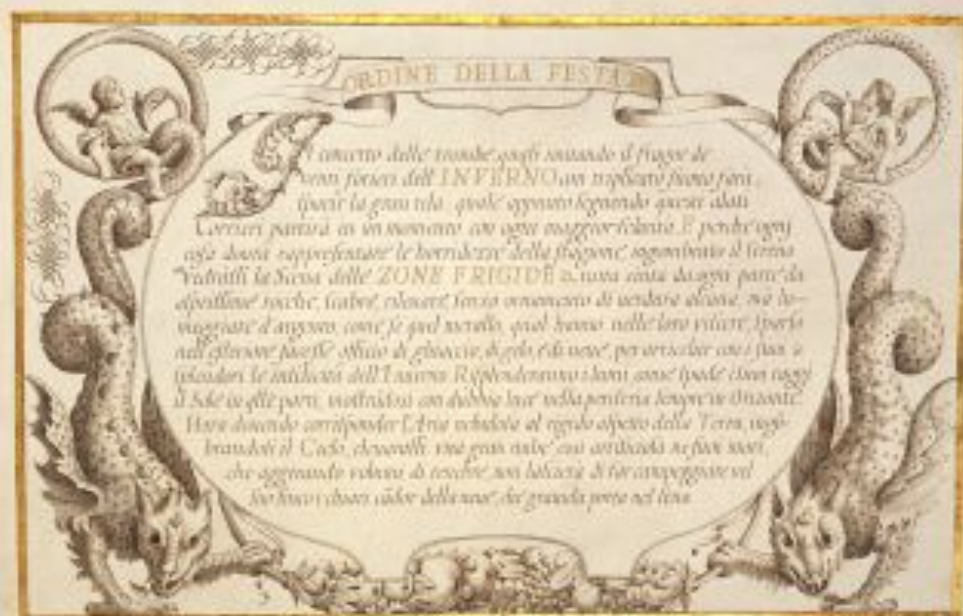 ORDINE DELLA FESTA
l concerto delle trombe, quali imitando il fragor de
venti forieri dell'INVERNO con triplicato suono farà
sparir la gran tela, quale appunto seguendo questi alati
Corrieri partirà in un momento con ogni maggior E perche ogni
cosa dovrà rappresentare le horridezze della stagione, il
vedrassi la Scena delle ZONE FRIGIDE tutta cinta da ogni parte da
rocche, scabre, senza ornamento di verdura alcuna, mà lu-
meggiate d'argento, come se quel metallo, qual hanno nelle loro viscere,
nell'esteriore facesse officio di ghiaccio, di gelo, e di neve, per con i suoi
splendori le dell'Inverno. Risplenderanno i lumi come
il Sole in quelle parti, mostrandosi con dubbia luce nella periferia sempre in Orizonte.
Hora dovendo corrisponder l'Aria al rigido aspetto della Terra,
il Cielo, una gran nube così artificiosa ne suoi moti,
che aggirando volumi di tenebre, non lascierà di far campeggiare nel
suo fosco i chiari della neve, che gravida porta nel seno.